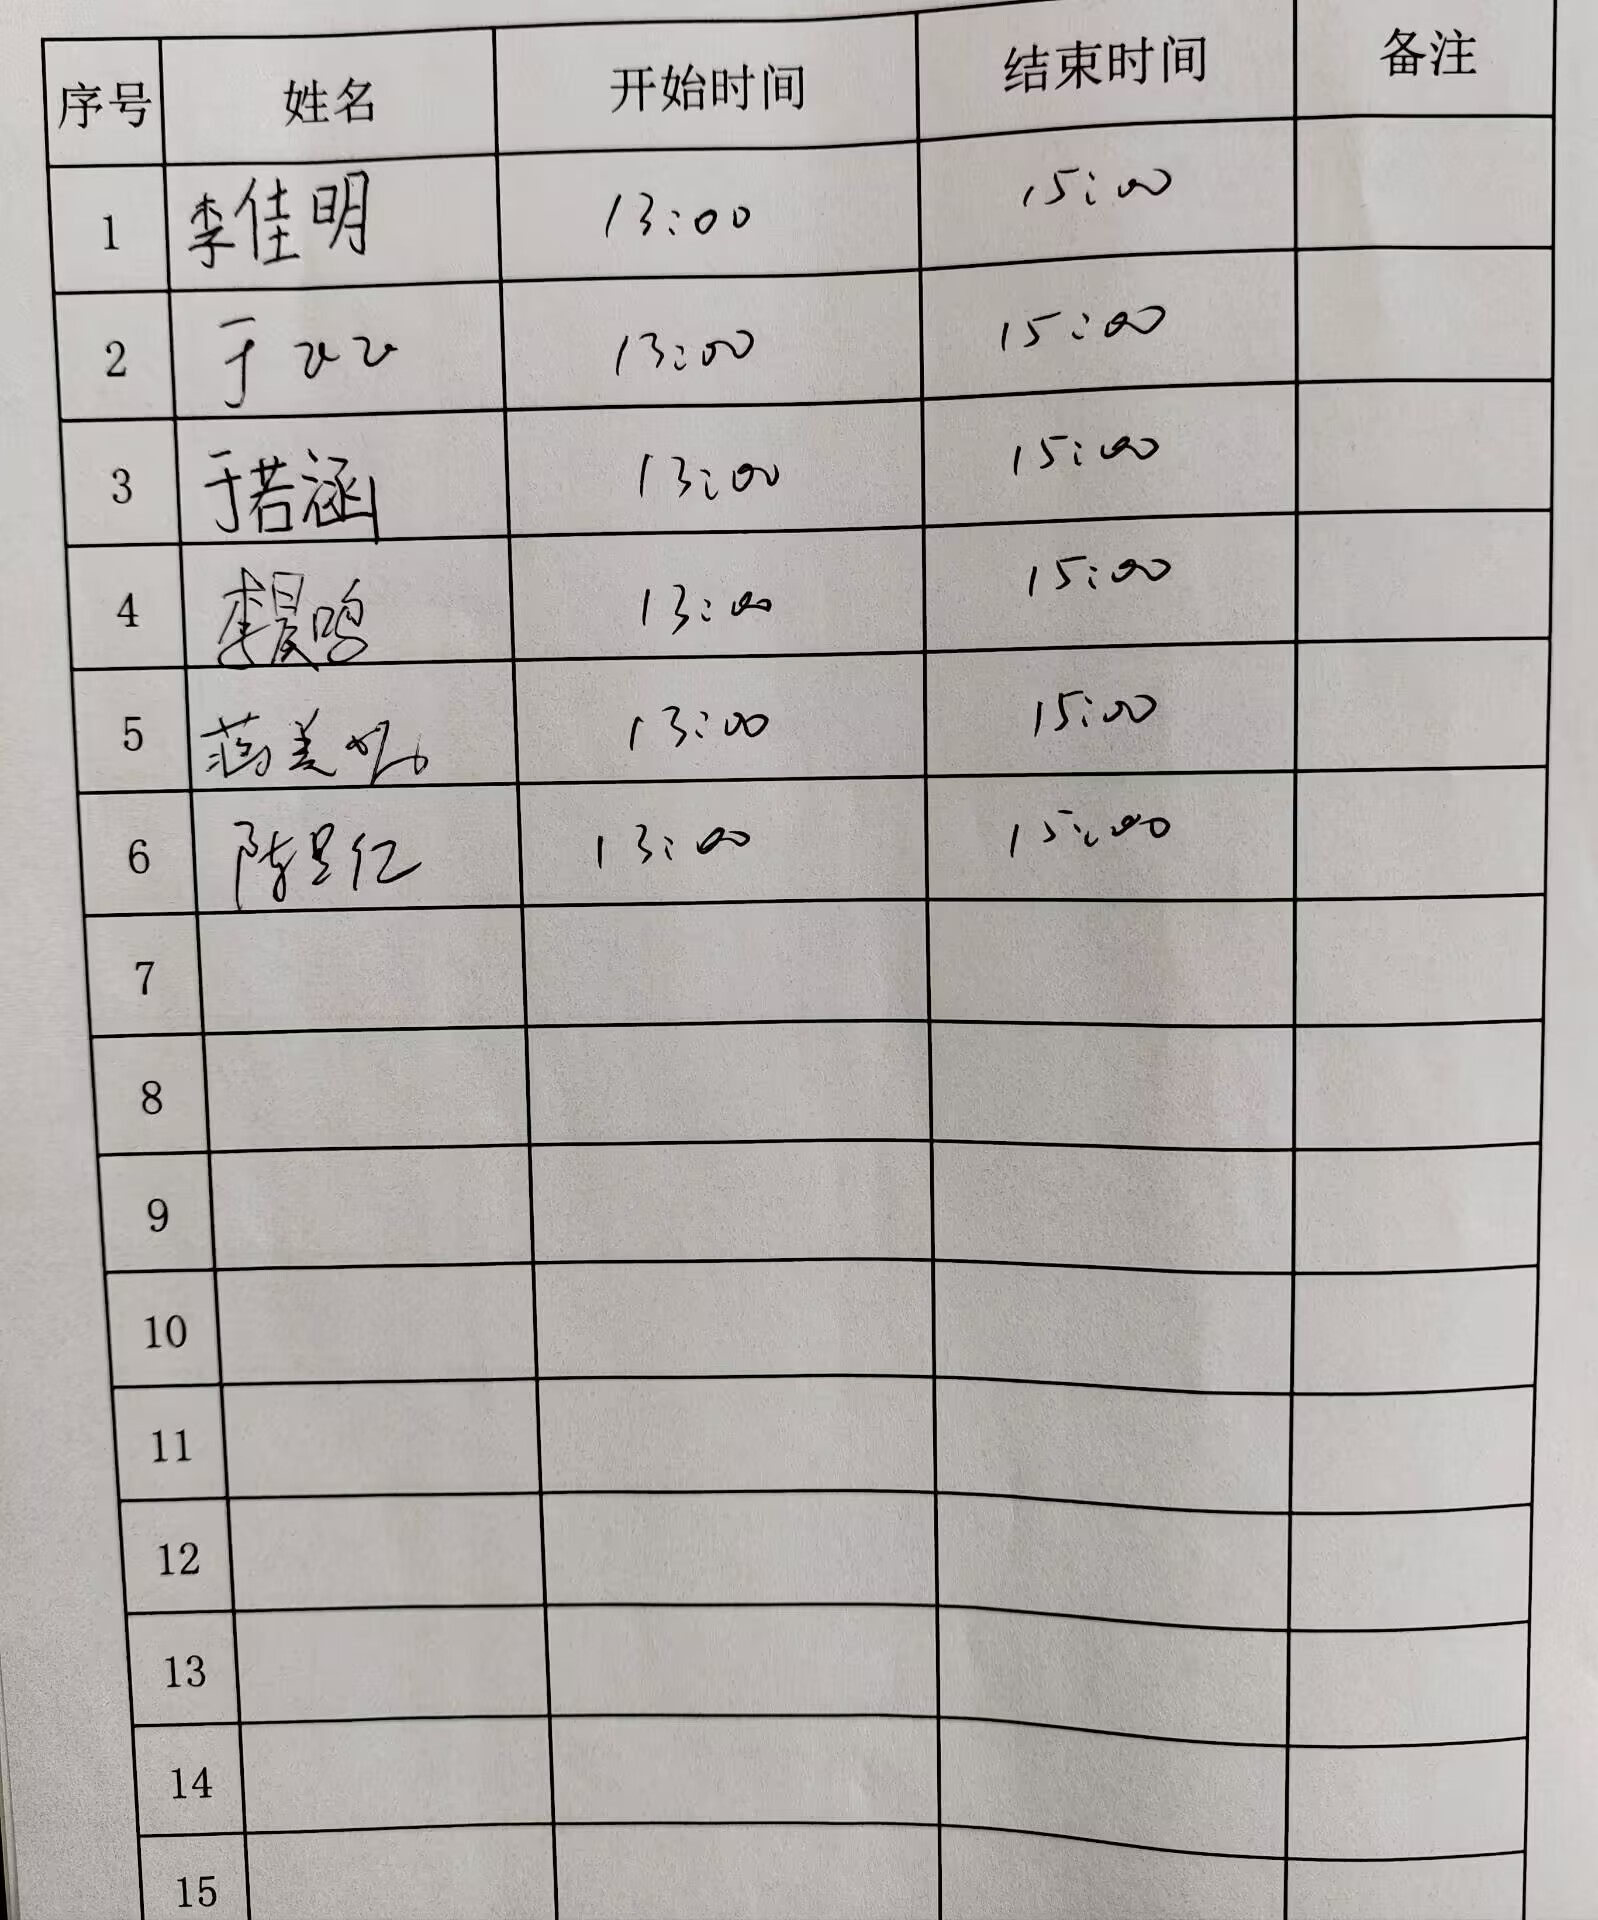 序号 姓名 开始时间 结束时间 备注
1 李佳明 13:00 15:00
2 于 13:00 15:00
3 于若涵 13:00 15:00
4 李晨鸣 13:00 15:00
5 13:00 15:00
6 陈 13:00 15:00
7
8
9
10
11
12
13
14
15